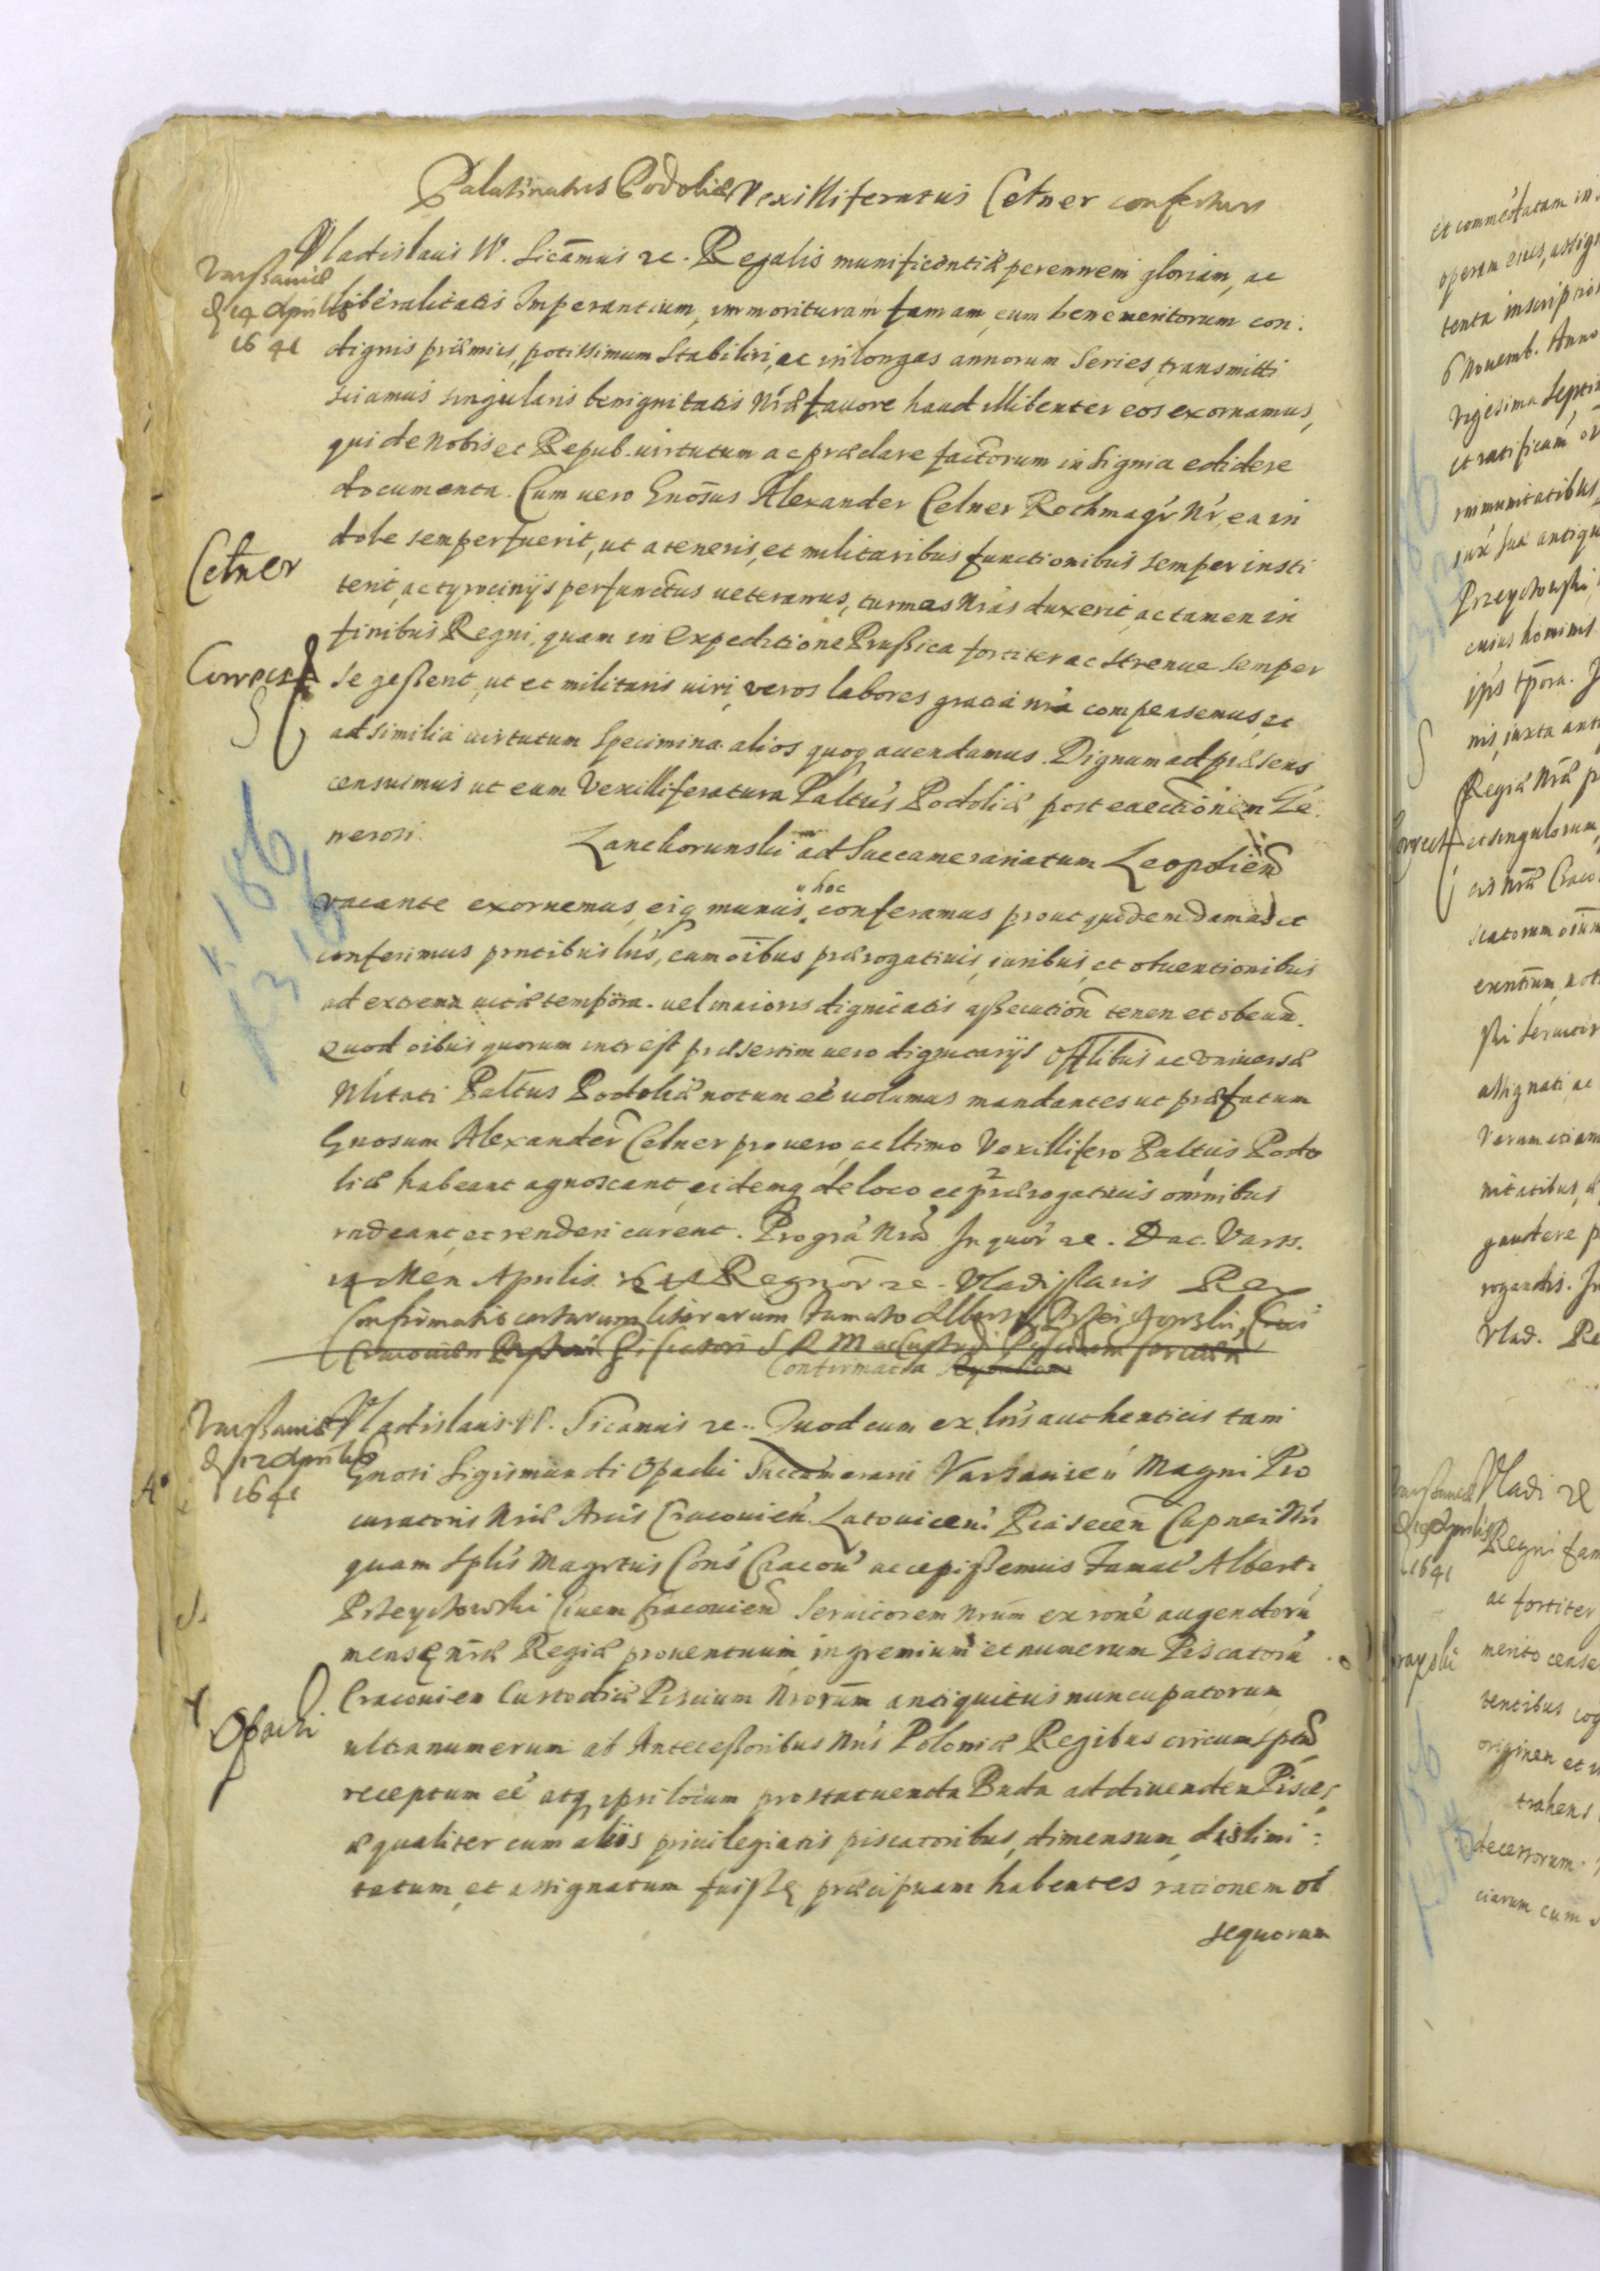 Palatinatus Podoliæ Vexilliferatus Cetner confertur
Varssaviæ
d 14 Aprilis
1641
Vladislaus IV. Sicamus etc. Regalis munificentiæ perennem gloriam, ac
liberalitatis Imperantium, immorituram famam, cum benemeritorum con:
dignis præmiis, potissimum stabiliri, ac in longas annorum series, transmitti
sciamus singularis benignitatis Nræ favore haud illibenter eos exornamus,
qui de Nobis et Repub. virtutum ac præclare factorum insignia edidere
documenta. Cum vero Gnosus Alexander Cetner Rothmagr Nr, ea in
dole semper fuerit, ut a teneris, et militaribus functionibus semper insti
Cetner
terit, ac tyrocinijs perfunctus veteranus, turmas Nras duxerit, ac tamen in
finibus Regni, quam in Expeditione Prussica fortiter ac strenue semper
Correct
se gesserit, ut et militaris viri, veros labores gratia nra compensemus, et
ad similia virtutum specimina alios quoq accendamus. Dignum ad præsens
censuimus ut eum Vexilliferatura Paltus Podoliæ post
nerosi Lanckorunski ad Succamerariatum Leopolien
vacante exornemus, eiq munus hoc conferamus prout quidem damus et
conferimus pntibus lris, cum oibus prærogativis, iuribus, et obventionibus
ad extrema vitæ tempora. vel maioris dignitatis assecution tenen et obeun.
Quod oibus quorum intrest præsertim vero dignitarijs Offlibus ac Universæ
Nlitati Paltus Podoliæ notum eē volumus mandantes ut præfatum
Gnosum Alexandern Cetner pro vero ac ltimo Vexillifero Paltus Podo
liæ habeant agnoscant, eidemq de loco ac prærogativis omnibus
rndeant, et renderi curent. Pro gra Nra In quor etc. Dat. Vars.
14 Men Aprilis. 1641 Regnor etc. Vladislaus Rex
Confirmatio certarum literarum famato Alberto
Cracovien Piscatori S R M ac Custodi Piscium
Confirmatia
Varssaviæ
d 12 Aprilis
1641
Vladislaus IV. Sicamus etc. Quod cum ex lris authenticis tam
Gnosi Sigismundi Opacki Succamerarii Varsavien Magni Pro
curatoris Nri Arcis Cracovien Latovicen Piasecen Capnei Nri
quam Splis Magrtus Cons Cracov accepissemus Famat Albert.
Przeychowski Civem Cracovien Servitorem Nrum ex rone augendoru
mensę nræ Regiæ proventuum, in gremium et numerum Piscatoru
Cracovien Custodiæ Piscium Nrorum antiquitus nuncupatorum
Opacki
ultra numerum ab Antecessoribus Nris Poloniæ Regibus circumsptũ
receptum eē atq ipsi locum pro statuenda Buda ad divenden Pisces,
æqualiter cum aliis privilegiatis piscatoribus, dimensum, dislimi:
tatum, et assignatum fuisse, præcipuam habentes rationem ob
sequorum
et commodatam in
operam eius, assign
tenta inscription
6 Novemb. Anno
Vigesima Septim
et ratificam
immunitatibus,
jura sua antiqu
Przeychowski,
cuius hominis
ipis tpora.
nis, iuxta ant
Regiæ Nræ p
Correct
et singulorum,
cis Nræ Craco
assignati, ac
Verum etiam
nitatibus,
gaudere p
rogandis. In
Vlad. Re
Varssaviæ
Aprilis
1641
Vladi etc
Regni fam
ac fortiter
merito cense
tentibus cog
originem et
trahens
decessorum.
ciarum cum